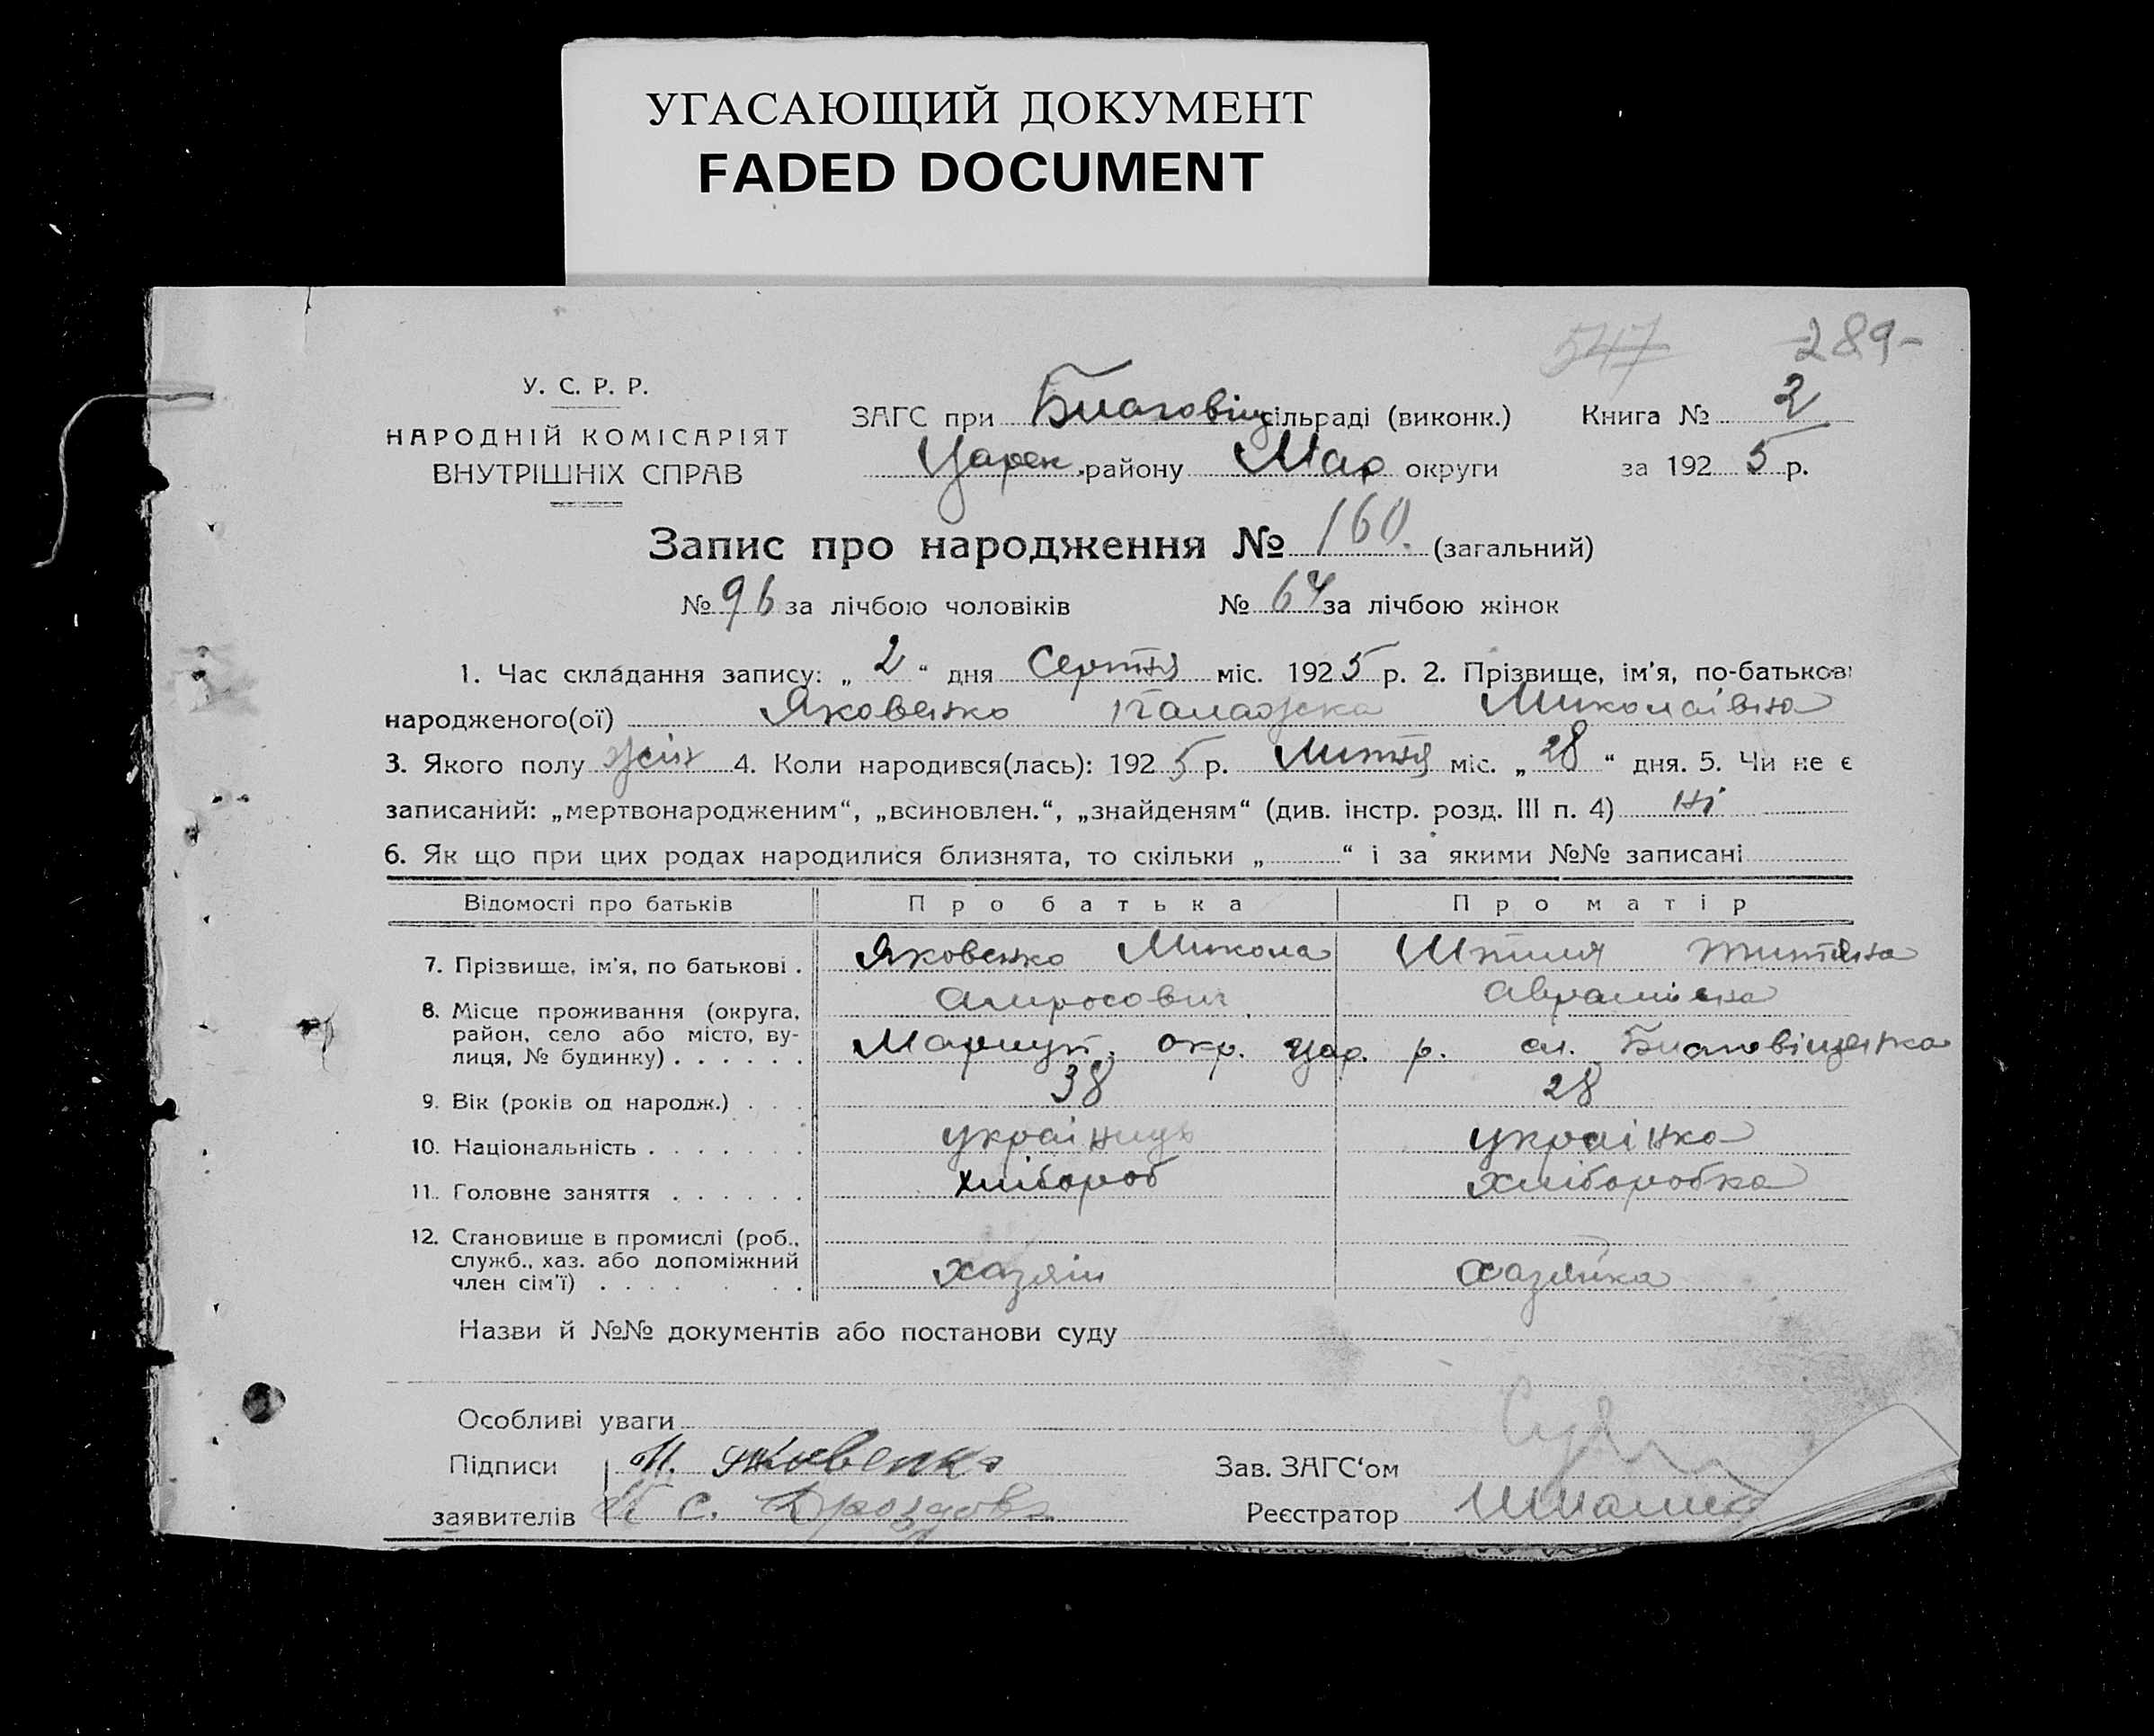 УГАСАЮЩИЙ ДОКУМЕНТ
FADED DOCUMENT
547 289-
У. С. Р. Р.
НАРОДНІЙ КОМІСАРІЯТ
ВНУТРІШНІХ СПРАВ
ЗАГС при Благовіщ сільраді (виконк.) Книга № 2
Царек. району Мар округи за 1925 р.
Запис про народження № 160. (загальний)
№ 96 за лічбою чоловіків № 64 за лічбою жінок
1. Час складання запису: „ 2 “ дня Серпня міс. 1925 р. 2. Прізвище, ім'я, по-батькові
народженого(ої) Яковенко Миколаівна
3. Якого полу жін 4. Коли народився(лась): 1925 р. Липня міс. „ 28 “ дня. 5. Чи не є
записаний: „мертвонародженим“, „всиновлен.“, „знайденям“ (див. інстр. розд. III п. 4) ні
6. Як що при цих родах народилися близнята, то скільки „ “ і за якими №№ записані
Відомості про батьків Про батька Про матір
7. Прізвище, ім'я, по батькові . Яковенко Микола
Амросович Аврамівна
8. Місце проживання (округа,
район, село або місто, ву-
лиця, № будинку) . . . . . . Маріуп. окр. Цар. р. сл. Благовіщенка
9. Вік (років од народж.) . . . 38 28
10. Національність . . . . . . . украінець украінка
11. Головне заняття . . . . . . хлібороб хліборобка
12. Становище в промислі (роб.,
служб., хаз. або допоміжний
член сім'ї) . . . . . . . хазяін хазяйка
Назви й №№ документів або постанови суду
Особливі уваги
Підписи М. Яковенко Зав. ЗАГС'ом
заявителів с. Дроздова Реєстратор